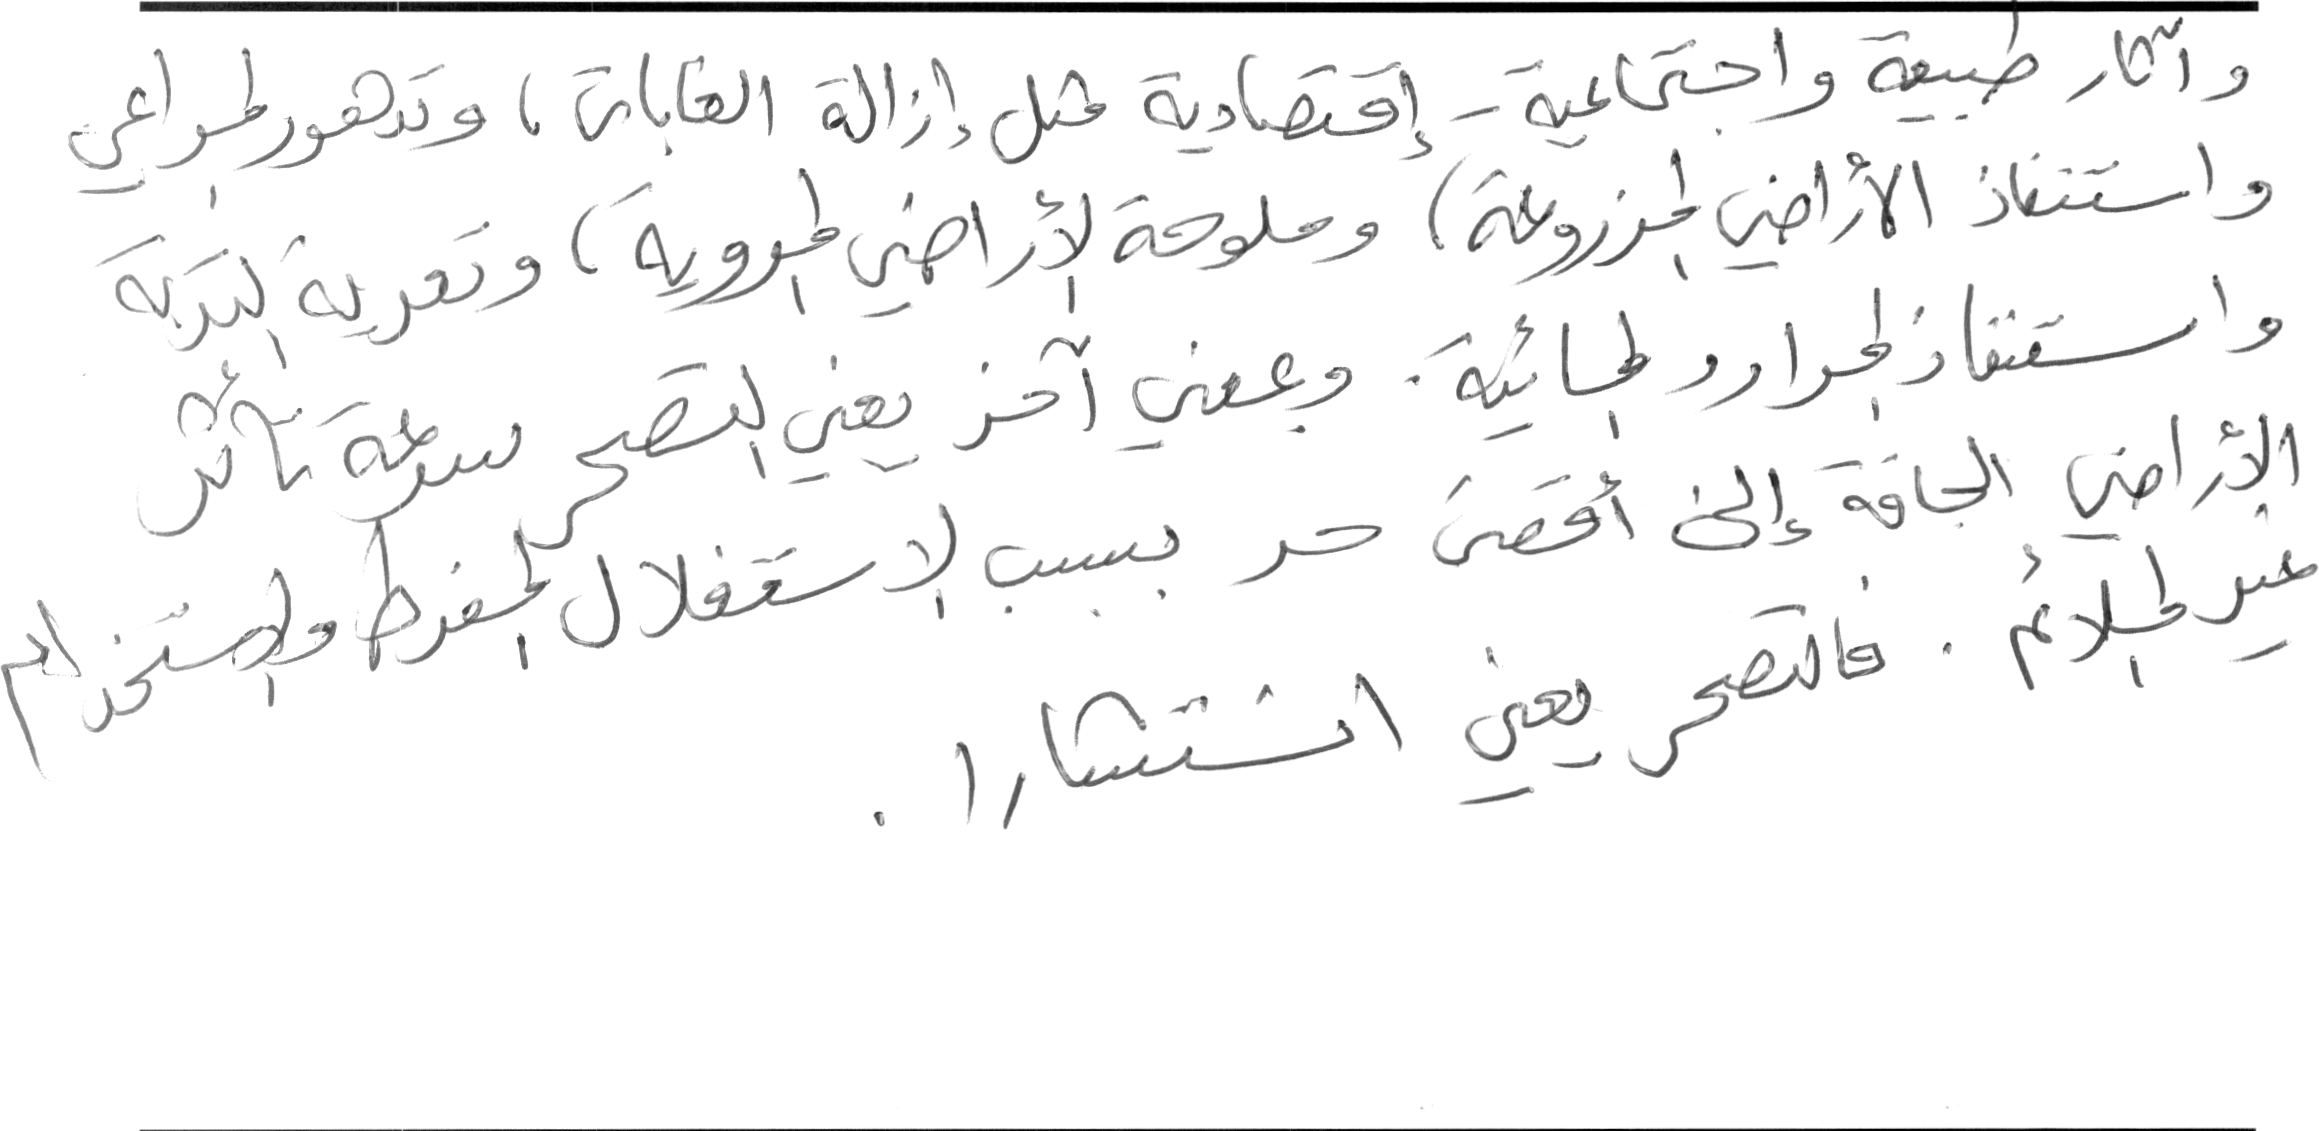 وآثار طبيعية واجتماعية - إقتصادية مثل إزالة الغابات، وتدهور المراعي
واستنفاذ الأراضي المزروعة، وملوحة الأراضي المروية، وتعرية التربة
واستنفاذ الموارد المائية. وبمعنى آخر يعني التصحر سرعة تأثر
الأراضي الجافة إلى أقصى حد بسبب الاستغلال المفرط والاستخدام
غير الملائم. فالتصحر يعني انتشارا.